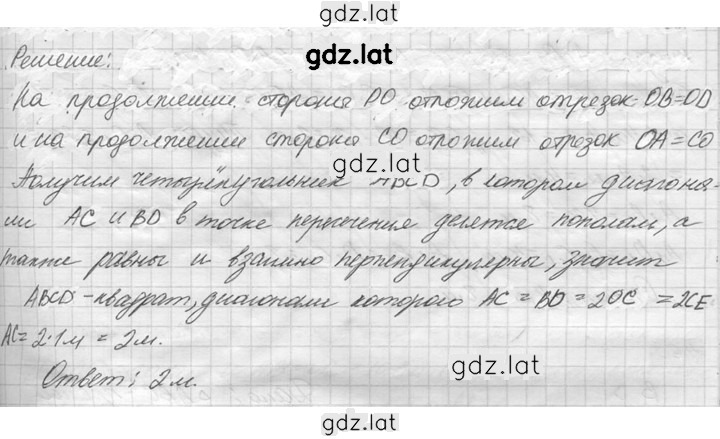 gdz.lat
gdz.lat
Решение:
На продолжении стороны DO отложим отрезок OB=OD
и на продолжении стороны CO отложим отрезок OA=CO
gdz.lat
Получим четырёхугольник ABCD, в котором диагона-
ли AC и BD в точке пересечения делятся пополам, а
также равны и взаимно перпендикулярны, значит
ABCD-квадрат, диагонали которого AC=BD=2OC =2CE
AC=2·1м = 2м.
gdz.lat
Ответ: 2м.
gdz.lat